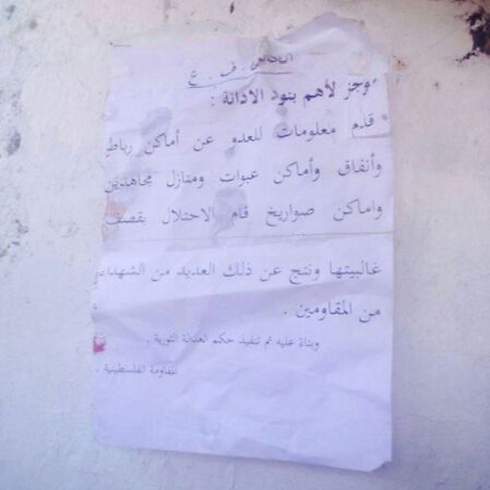 ف . ع
موجز لأهم بنود الادانة :
قدم معلومات للعدو عن أماكن رباط
وأنفاق وأماكن عبوات ومنازل مجاهدين
واماكن صواريخ قام الاحتلال بقصف
غالبيتها ونتج عن ذلك العديد من الشهداء
من المقاومين .
وبناءً عليه تم تنفيذ حكم العدالة الثورية .
المقاومة الفلسطينية .